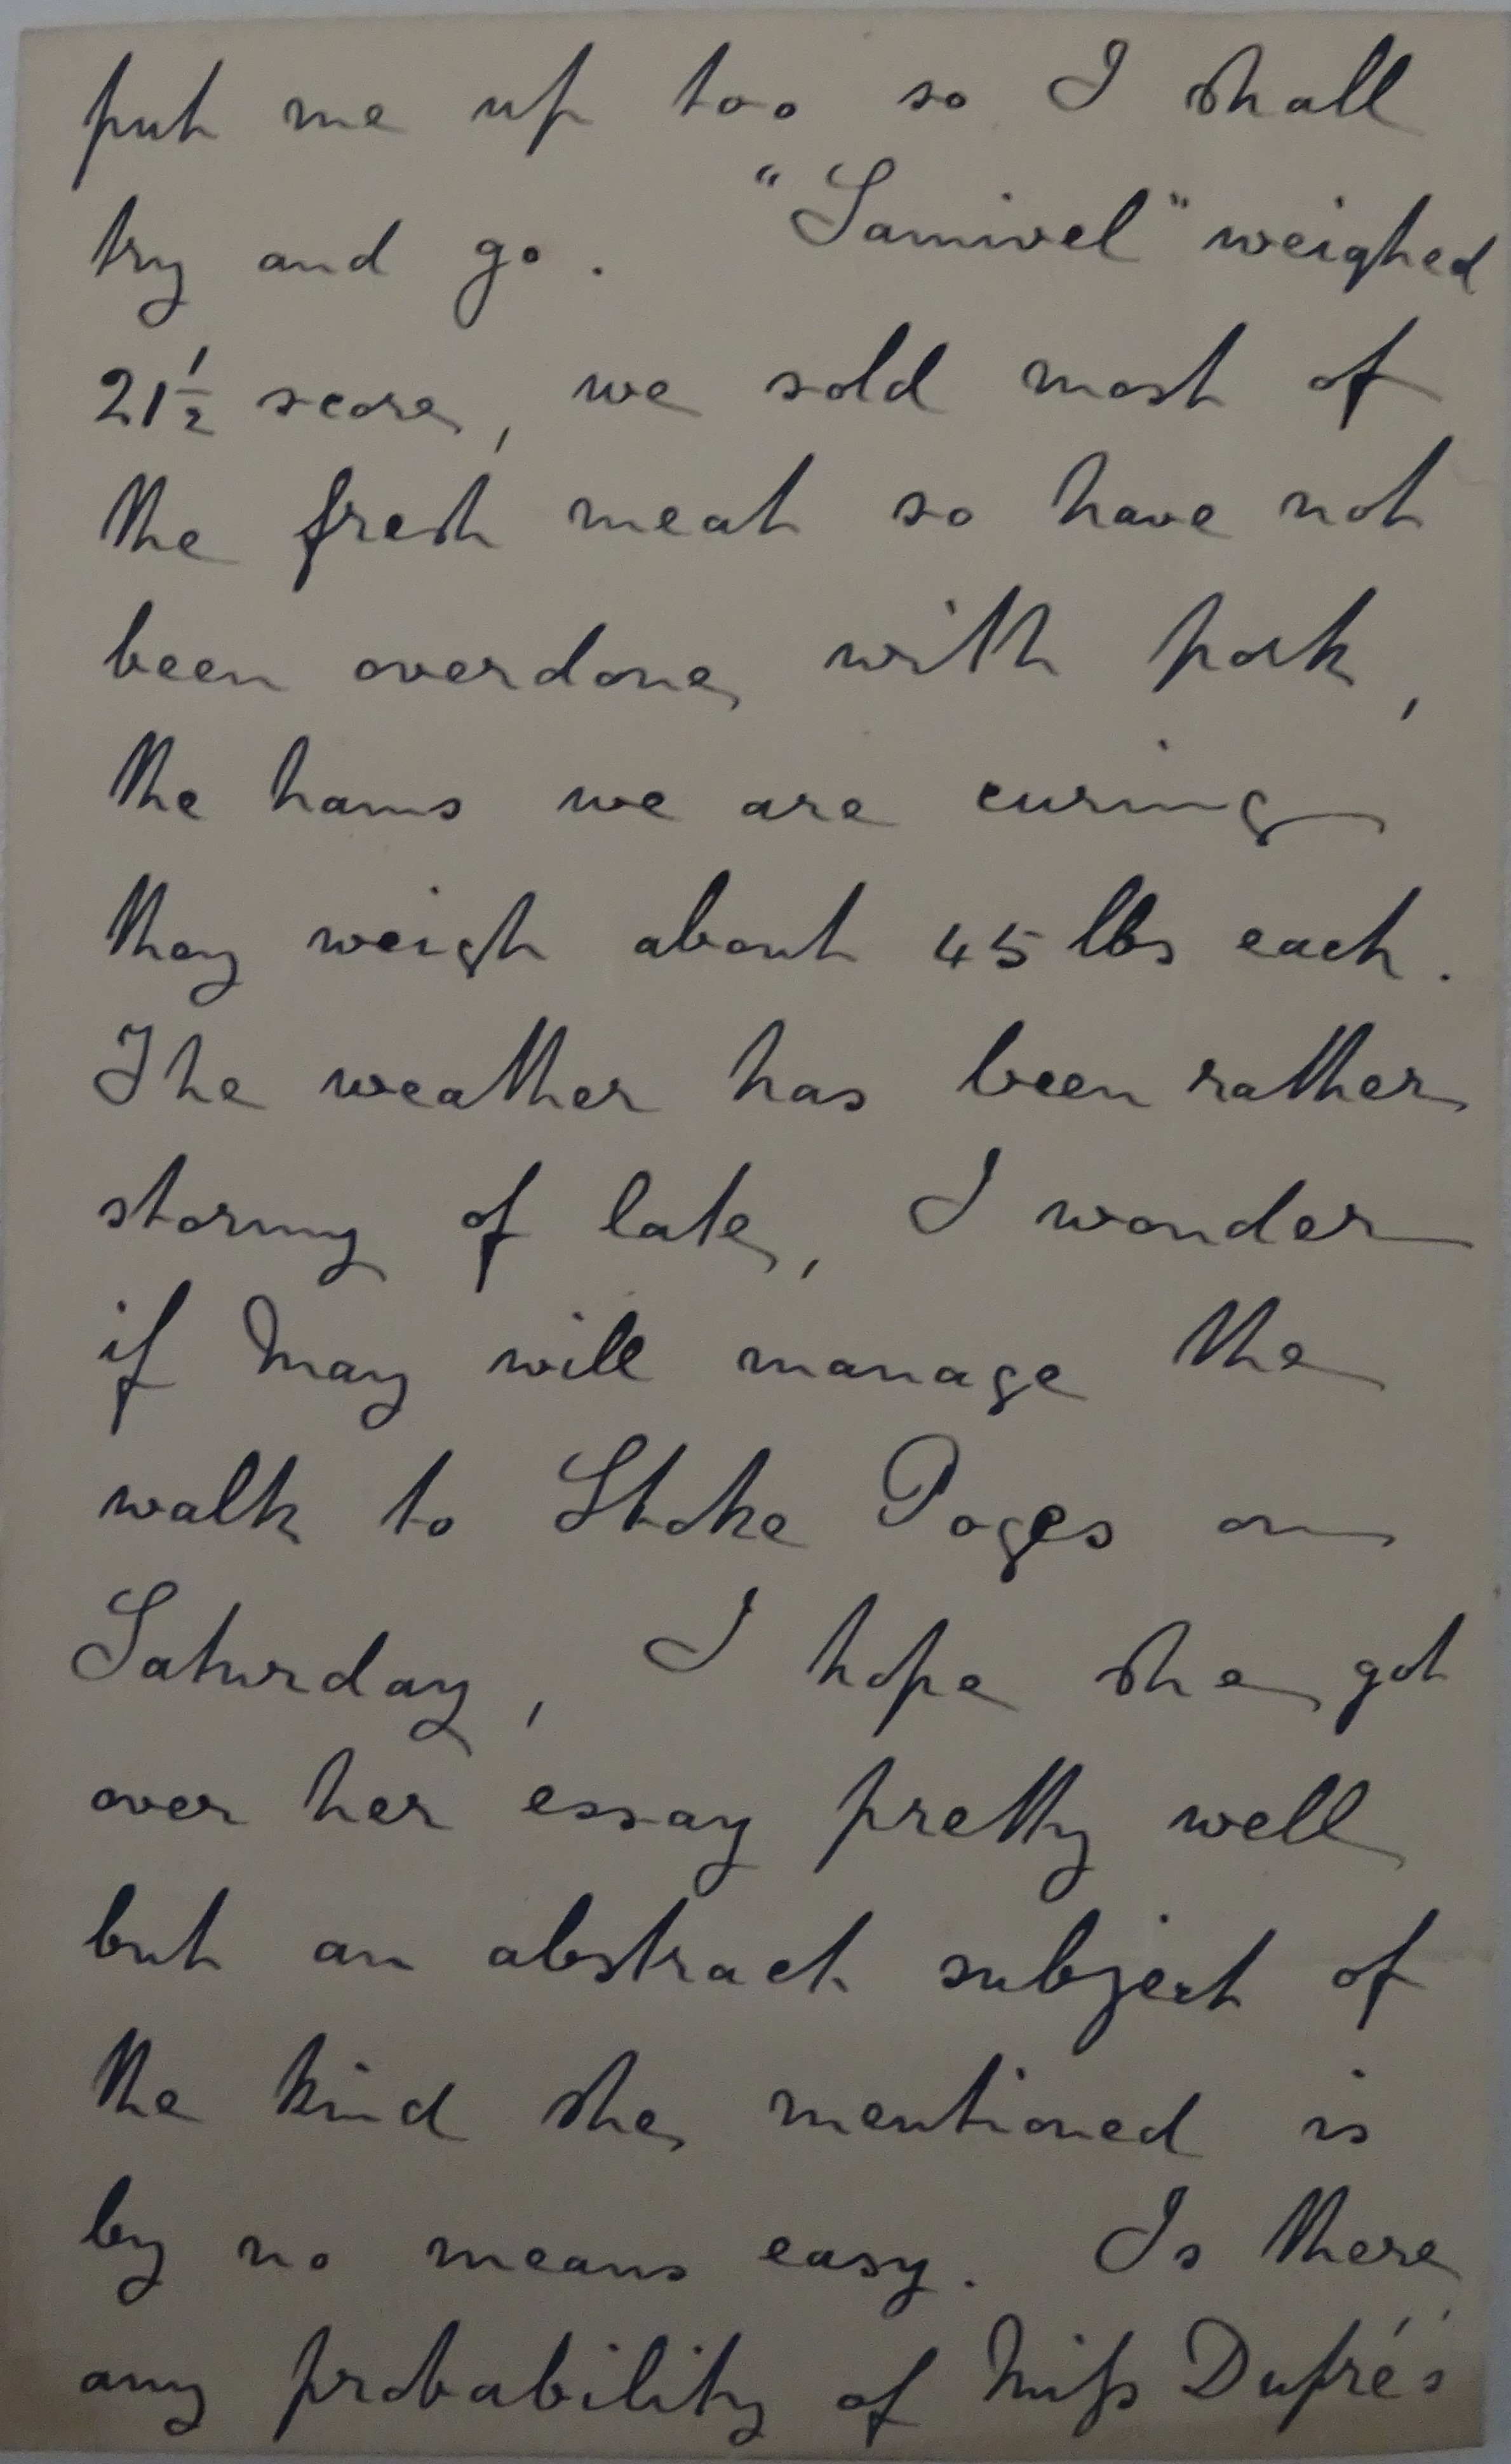 put me up too so I shall
try and go. "Samivel" weighed
21½ score, we sold most of
the fresh meat so have not
been overdone with pork,
the hams we are curing
they weigh about 45 lbs each.
The weather has been rather
stormy of late, I wonder
if May will manage the
walk to Stoke Poges on
Saturday, I hope she got
over her essay pretty well
but an abstract subject of
the kind she mentioned is
by no means easy. Is there
any probability of Miss Dupré's